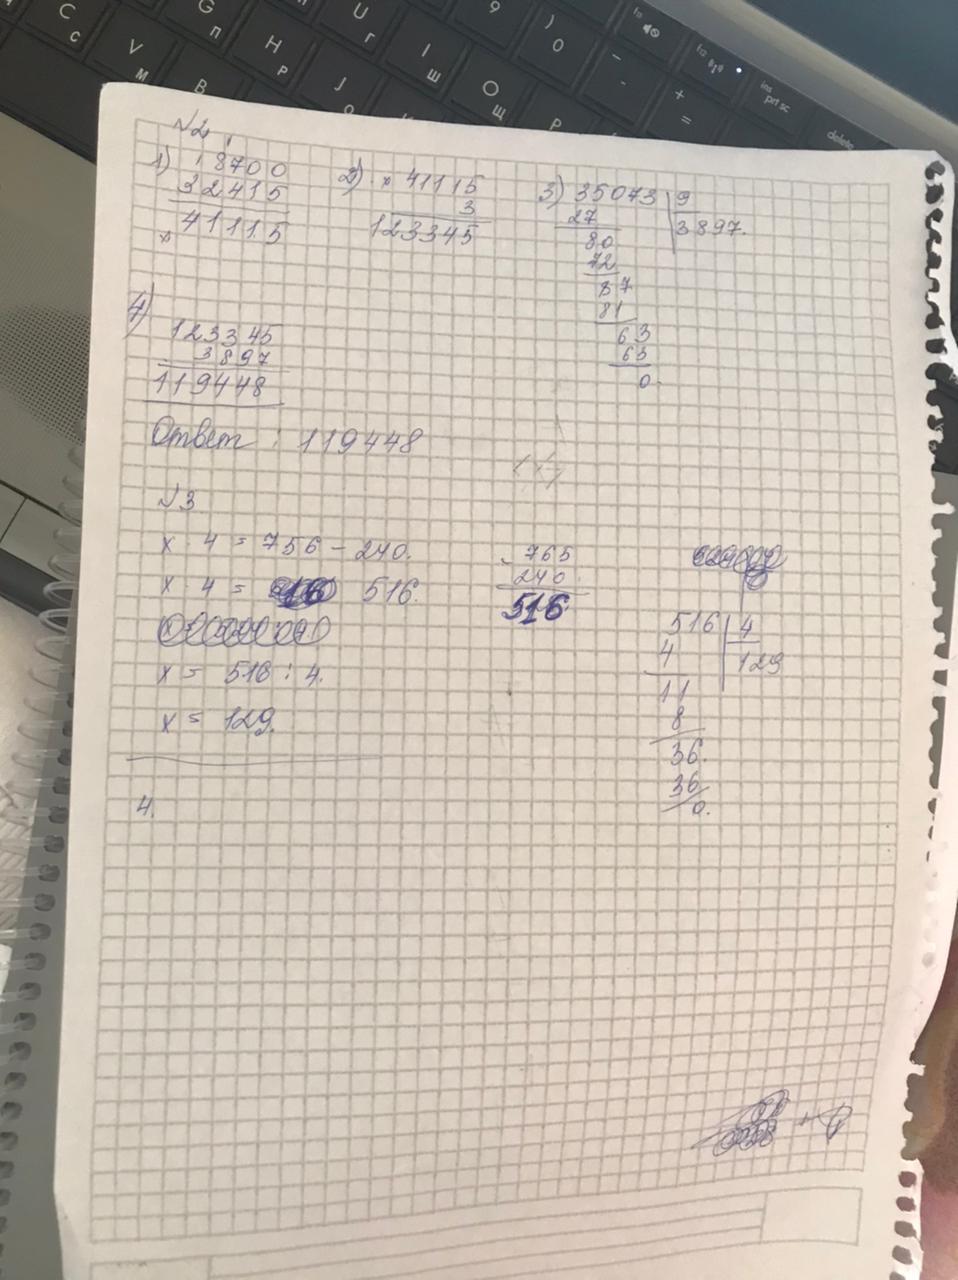 №2
1) 18700
32415
41115
2) × 41115
3
123345
3) 35073 9
27 3897.
80
72
87
81
63
63
0.
4)
123345
3897
119448
Ответ : 119448
№3
x · 4 = 756 - 240.
x · 4 = 516.
x = 516 : 4.
x = 129.
- 765
240.
516
516 4
4 129
11
8
36.
36
0.
4.
C
с
V
м
B
G
п
H
р
J
о
U
г
I
ш
O
щ
P
9
)
0
-
+
=
f11
f12
ins
prt sc
delete